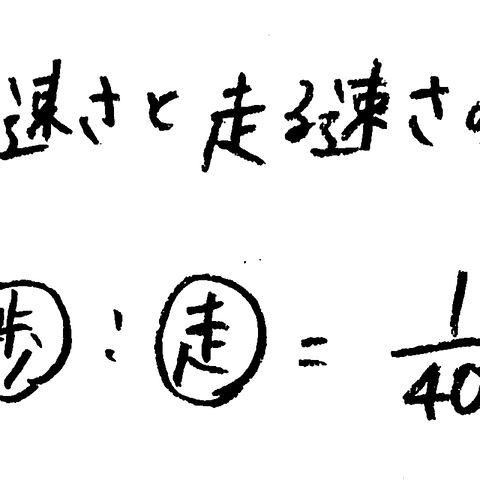 速さと走る速さの
歩:走=1/40